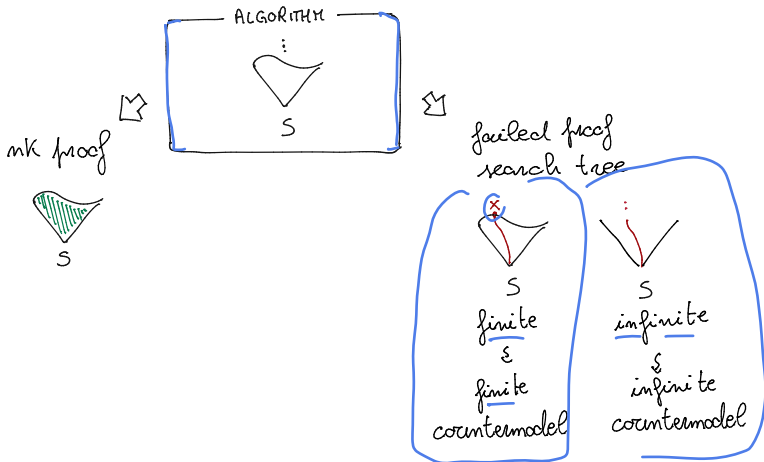 ALGORITHM
⋮
S
nk proof
S
failed proof
search tree
x
S
finite
&
finite
countermodel
⋮
S
infinite
&
infinite
countermodel